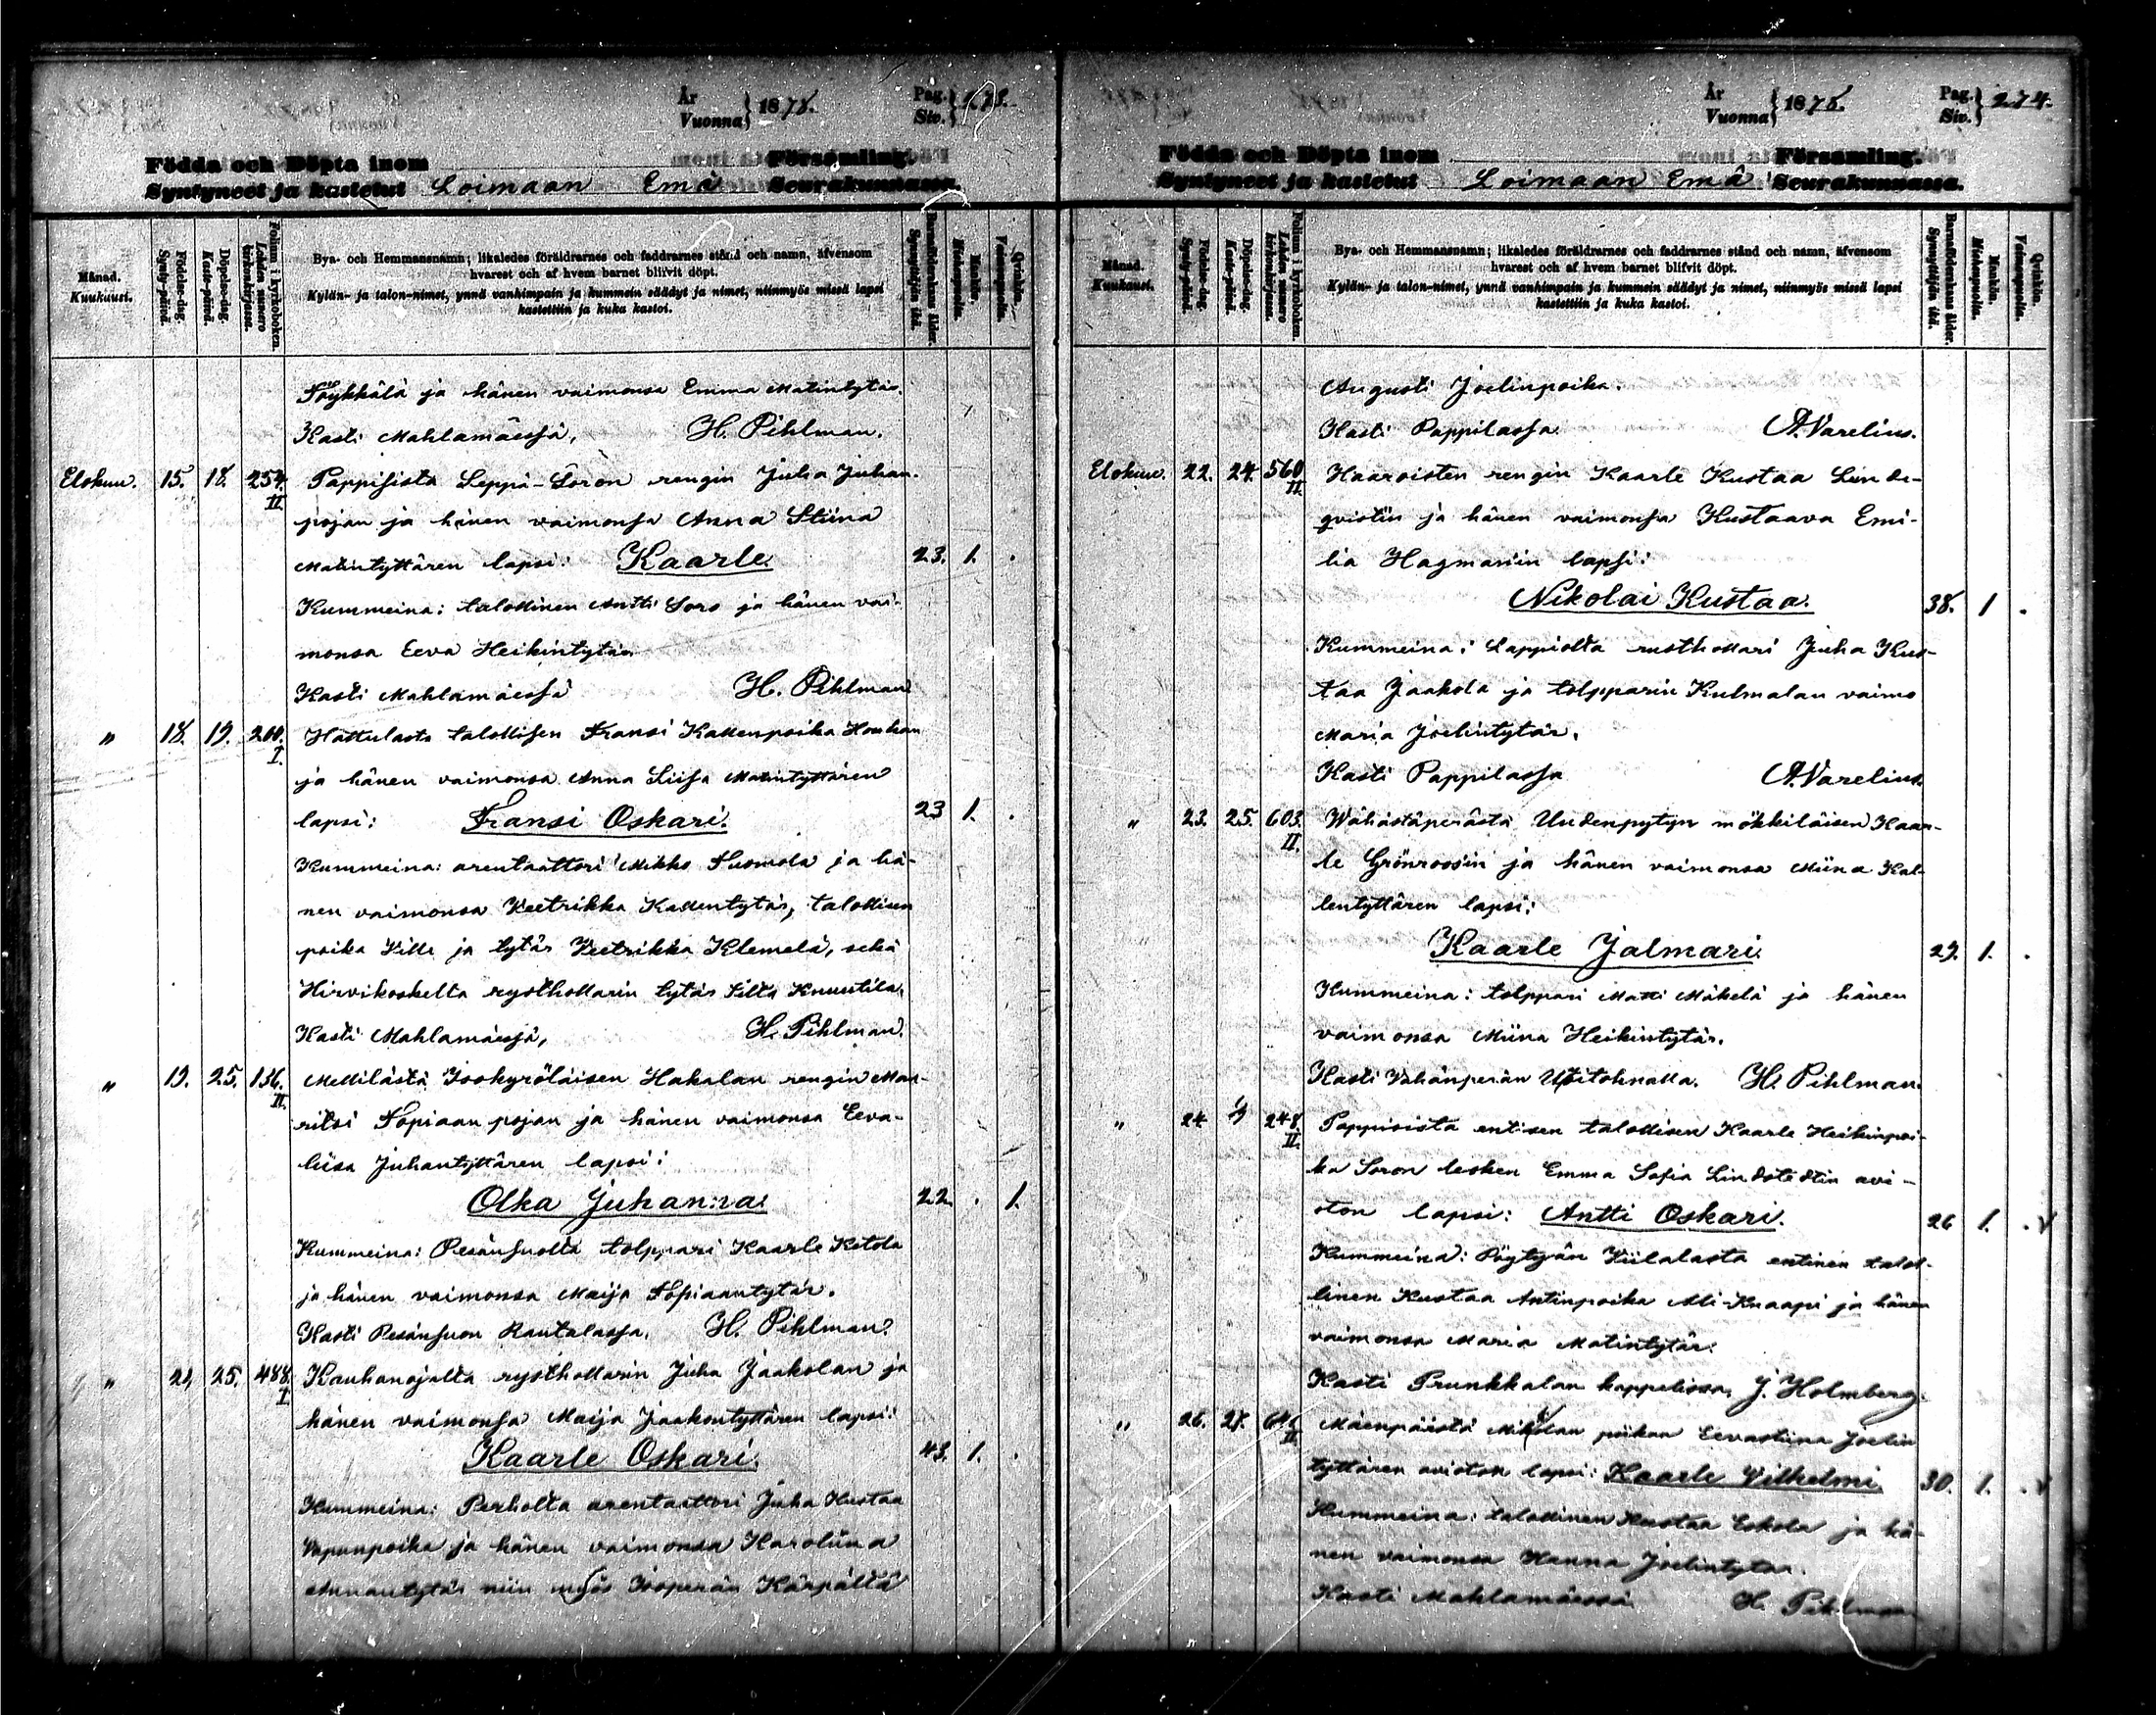 År
Vuonna } 1878.
Pag.
Siv. } 273.
Födda och Döpta inom Församling.
Syntyneet ja kastetut Loimaan Emä Seurakunnassa.
Månad.
Kuukausi.
Födelse-dag.
Synty-päivä.
Döpelse-dag.
Kaste-päivä.
Folium i kyrkoboken.
Lehden numero kirkonkirjassa.
Bya- och Hemmansnamn; likaledes föräldrarnes och faddrarnes stånd och namn, äfvensom
hvarest och af hvem barnet blifvit döpt.
Kylän- ja talon-nimet, ynnä vanhimpain ja kummein säädyt ja nimet, niinmyös missä lapsi
kastettiin ja kuka kastoi.
Barnaföderskans ålder.
Synnyttäjän ikä.
Mankön.
Miehenpuolia.
Qvinkön.
Vaimonpuolia.
Töykkälä ja hänen vaimonsa Emma Matintytär.
Kasti Mahlamäessä, H. Pihlman.
Elokuu. 15. 18. 254. II. Pappisista Leppä-Soron rengin Juha Juhan-
pojan ja hänen vaimonsa Anna Stiina
Matintyttären lapsi: Kaarle. 23. 1. .
Kummeina: talollinen Antti Soro ja hänen vai-
monsa Eeva Heikintytär
Kasti Mahlamäessä H. Pihlman
" 18. 19. 200. I. Hattulasta talollisen Fransi Kallenpoika Houhan
ja hänen vaimonsa Anna Liisa Matintyttären
lapsi: Fransi Oskari. 23 1. .
Kummeina: arentaattori Mikko Tuomola ja hä-
nen vaimonsa Veetrikka Kallentytär, talollisen
poika Ville ja tytär Veetrikka Klemelä, sekä
Hirvikoskelta rysthollarin tytär Silta Knuutila.
Kasti Mahlamäessä, H. Pihlman.
" 19. 25. 156. II. Mellilästä Isokyröläisen Hakalan rengin Mau-
ritsi Topiaan pojan ja hänen vaimonsa Eeva-
liisa Juhantyttären lapsi:
Olka Juhanna. 22. . 1.
Kummeina: Pesänsuolta tolppari Kaarle Ketola
ja hänen vaimonsa Maija Topiaantytär.
Kasti Pesänsuon Rautalassa. H. Pihlman.
" 21. 25. 488. I. Kauhanojalta rysthollarin Juha Jaakolan ja
hänen vaimonsa Maija Jaakontyttären lapsi:
Kaarle Oskari. 43. 1. .
Kummeina: Perholta arentaattori Juha Kustaa
Vapunpoika ja hänen vaimonsa Karoliina
Annantytär niin myös Isoperän Kärpältä
År
Vuonna } 1878.
Pag.
Siv. } 274.
Födda och Döpta inom Församling.
Syntyneet ja kastetut Loimaan Emä Seurakunnassa.
Månad.
Kuukausi.
Födelse-dag.
Synty-päivä.
Döpelse-dag.
Kaste-päivä.
Folium i kyrkoboken.
Lehden numero kirkonkirjassa.
Bya- och Hemmansnamn; likaledes föräldrarnes och faddrarnes stånd och namn, äfvensom
hvarest och af hvem barnet blifvit döpt.
Kylän- ja talon-nimet, ynnä vanhimpain ja kummein säädyt ja nimet, niinmyös missä lapsi
kastettiin ja kuka kastoi.
Barnaföderskans ålder.
Synnyttäjän ikä.
Mankön.
Miehenpuolia.
Qvinkön.
Vaimonpuolia.
Augusti Joelinpoika.
Kasti Pappilassa. A. Varelius.
Elokuu. 22. 24. 560 II. Haaroisten rengin Kaarle Kustaa Linde-
qvistin ja hänen vaimonsa Kustaava Emi-
lia Hagmanin lapsi:
Nikolai Kustaa. 38. 1 .
Kummeina: Lappiolta rusthollari Juha Kus-
taa Jaakola ja tolpparin Kulmalan vaimo
Maria Joelintytär.
Kasti Pappilassa A. Varelius.
" 23. 25. 603. II. Vähästäperästä Uudenpytyn mökkiläisen Kaar-
le Grönroosin ja hänen vaimonsa Miina Kal-
lentyttären lapsi:
Kaarle Jalmari. 29. 1. .
Kummeina: tolppari Matti Mäkelä ja hänen
vaimonsa Miina Heikintytär.
Kasti Vähänperän H. Pihlman.
" 24 248. II. Pappisista entisen talollisen Kaarle Heikinpoi-
ka Soron lesken Emma Sofia Lindstedtin avi-
oton lapsi: Antti Oskari. 26 1. .
Kummeina: Pöytyän Kiilalasta entinen talol-
linen Kustaa Antinpoika Ali-Knaapi ja hänen
vaimonsa Maria Matintytär.
Kasti Prunkkalan kappelissa, J. Holmberg.
" 26. 27. II. Mäenpäästä Mikolan piikan Eevastiina Joelin
tyttären avioton lapsi: Kaarle Vilhelmi. 30. 1. .
Kummeina: talollinen Kustaa Eskola ja hä-
nen vaimonsa Hanna Joelintytär.
Kasti Mahlamäessä H. Pihlman